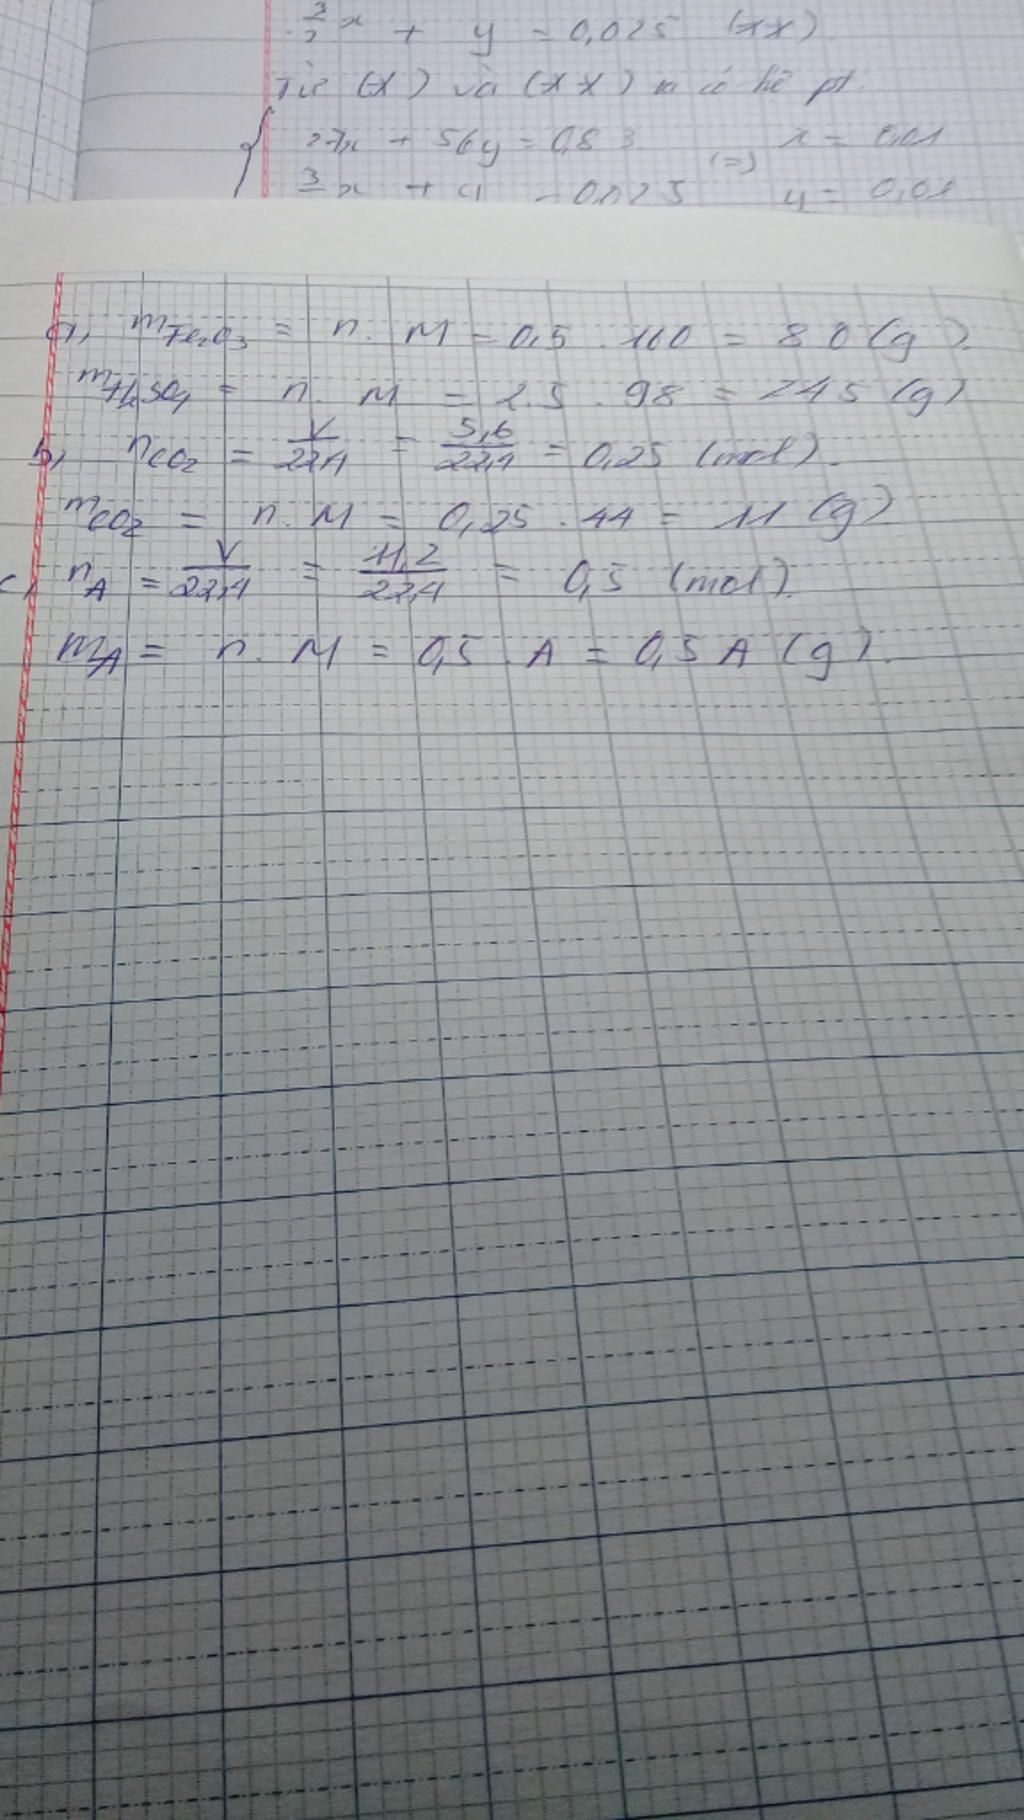 3/2 x + y = 0,025 (xx)
Từ (x) và (xx) ta có hệ pt
27x + 56y = 0,83 x = 0,01
(=)
3/2 x + y = 0,025 y = 0,01
a, mFe2O3 = n. M = 0,5 . 160 = 80 (g).
mH2SO4 = n. M = 2.5 . 98 = 245 (g)
b, nCO2 = V/22,4 = 5,6/22,4 = 0,25 (mol).
mCO2 = n. M = 0,25 . 44 = 11 (g)
c, nA = V/22,4 = 11,2/22,4 = 0,5 (mol).
mA = n. M = 0,5 . A = 0,5 A (g).